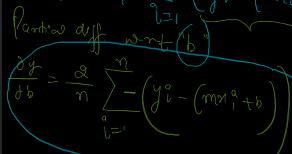 i=1
Partial diff w.r.t "b"
∂y/∂b = 2/n n∑i=1 -(yi - (mxi + b)